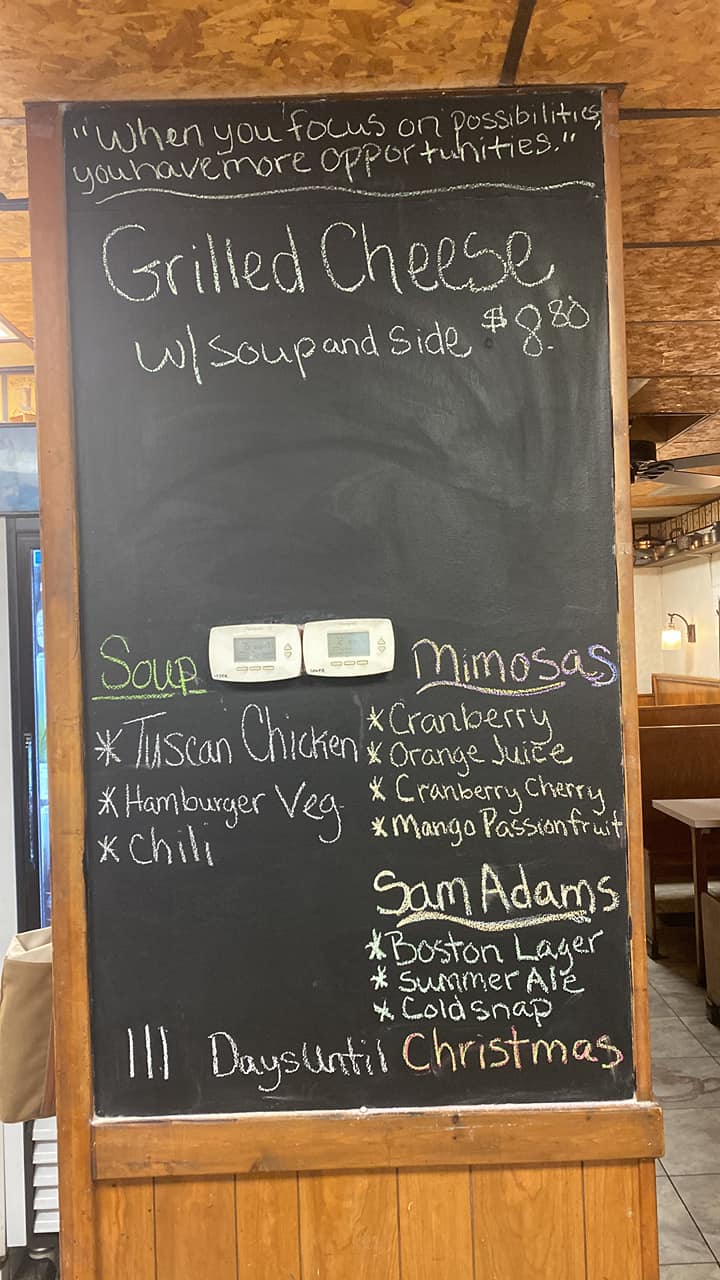 "When you focus on possibilities,
you have more opportunities."
Grilled Cheese
w/ Soup and Side $8.80
Soup
* Tuscan Chicken
* Hamburger Veg
* Chili
Mimosas
* Cranberry
* Orange Juice
* Cranberry Cherry
* Mango Passionfruit
Sam Adams
* Boston Lager
* Summer Ale
* Cold snap
111 Days Until Christmas